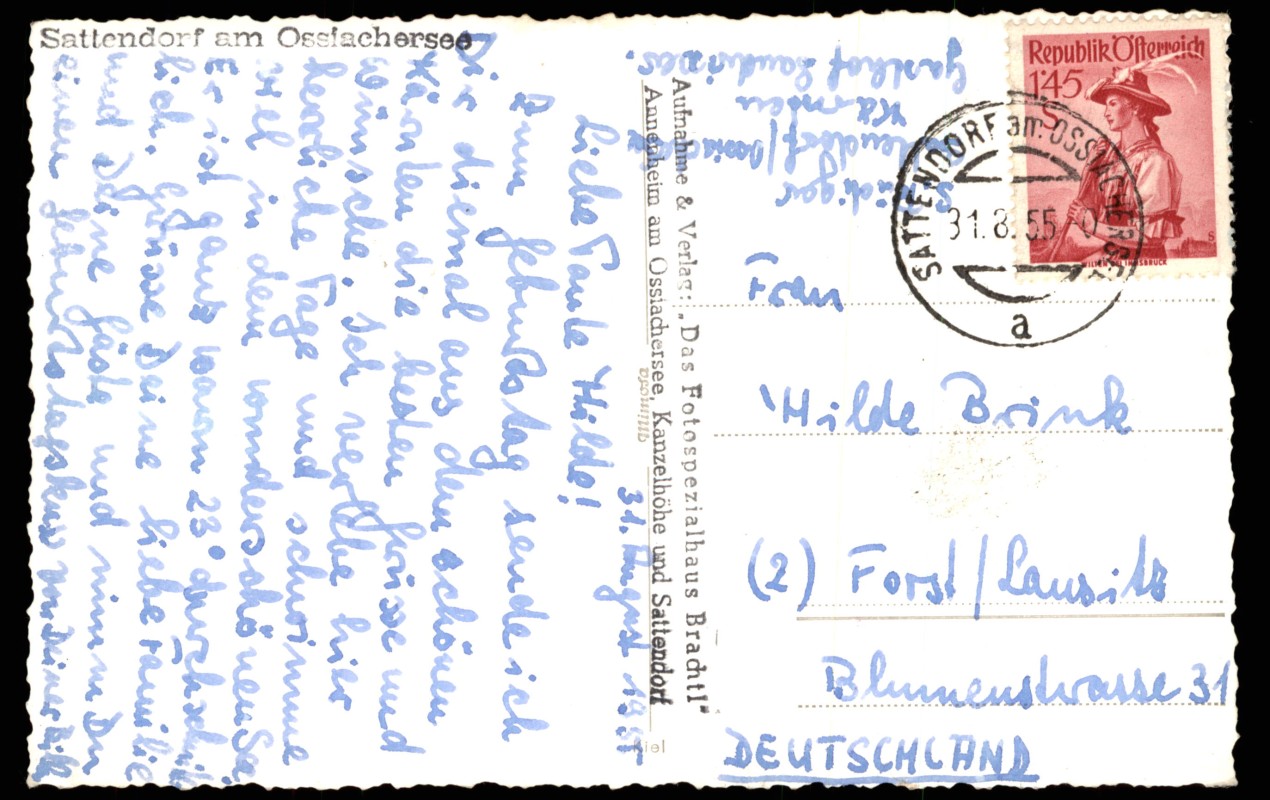 Sattendorf am Ossiachersee
31. August 1955
Liebe Tante Hilde!
Zum Geburtstag sende ich
Dir diesmal aus dem schönen
Kärnten die besten Grüsse und
Wünsche. Ich verlebe hier
herrliche Tage und schwimme
viel in dem wunderschönen See
Er ist ganz warm 23° durchschnitt
lich. Grüsse Deine liebe Familie
und Deine Gäste und nimm Du
einen Geburtstagskuss von Deiner
Aufnahme & Verlag: „Das Fotospezialhaus Brachtl"
Annenheim am Ossiachersee, Kanzelhöhe und Sattendorf
Kärnten
Gasthof
Republik Österreich
1'45
S
WILTEN BEI INNSBRUCK
SATTENDORF am OSSIACHERSEE
31.8.55
a
Frau
Hilde Brink
(2) Forst/Lausitz
Blumenstrasse 31
DEUTSCHLAND